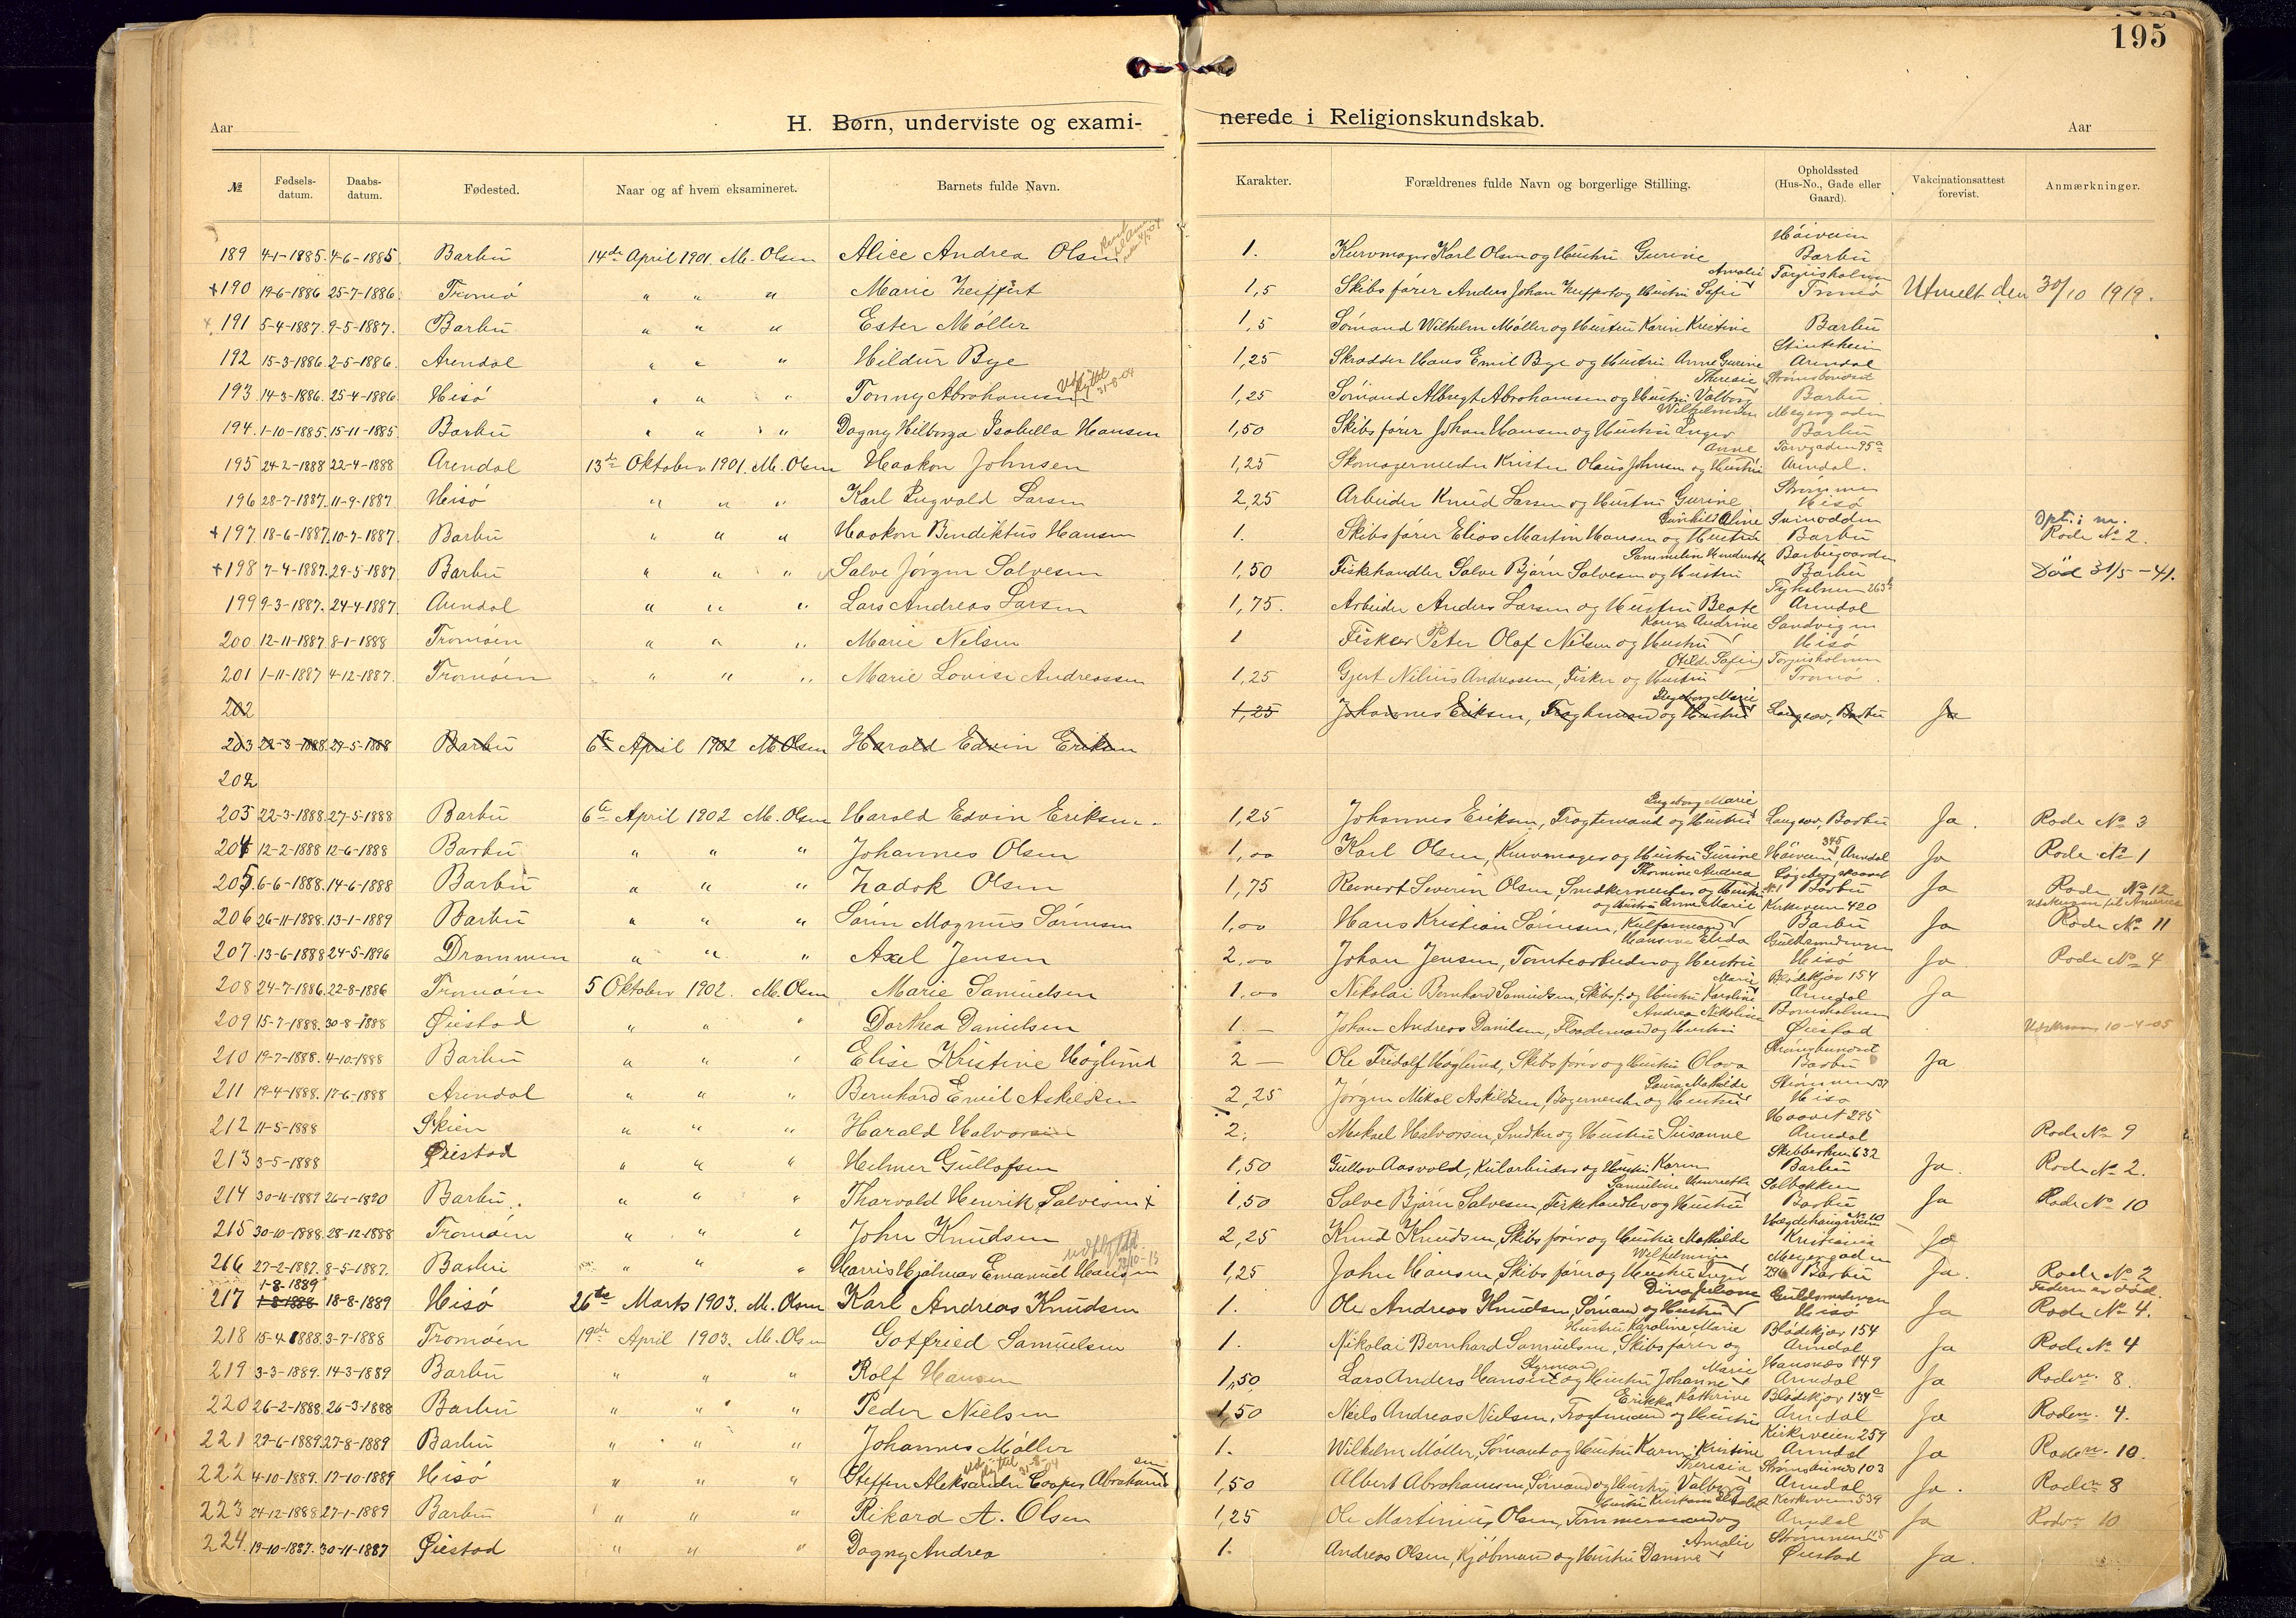 195
Aar
H. Børn, underviste og exami-
nerede i Religionskundskab.
Aar
№ Fødsels-datum. Daabs-datum. Fødested. Naar og af hvem eksamineret. Barnets fulde Navn. Karakter. Forældrenes fulde Navn og borgerlige Stilling. Opholdssted (Hus-No., Gade eller Gaard). Vakcinationsattest forevist. Anmærkninger.
189 4-1-1885. 4-6-1885. Barbu 14de April 1901. M. Olsen Alice Andrea Olsen 1. Kurvmager Karl Olsen og Hustru Gurine Høiveien Barbu
+190 19-6-1886 25-7-1886. Tromø " " " Marie 1,5 Skibsfører Anders Johan og Hustru Sofie Amalie Torjusholmen Tromø Utmelt den 30/10 1919.
191 5-4-1887. 9-5-1887. Barbu " " " Ester Møller 1,5 Sømand Wilhelm Møller og Hustru Karin Kristine Barbu
192 15-3-1886. 2-5-1886. Arendal " " " Hildur Bye 1,25 Skrædder Hans Emil Bye og Hustru Anne Gurine Arendal
193 14-3-1886. 25-4-1886. Hisø " " " Tonny Abrahamsen Udflyttet 31-8-04 1,25 Sømand Albregt Abrahamsen og Hustru Valborg Theresie Strømsbonæset Barbu
194. 1-10-1885. 15-11-1885. Barbu " " " Dagny Hilborga Isabella Hansen 1,50 Skibsfører Johan Hansen og Hustru Inger Wilhelmine Meyergaden Barbu
195 24-2-1888 22-4-1888 Arendal 13de Oktober 1901. M. Olsen Haakon Johnsen 1,25 Skomagermester Kristen Olaus Johnsen og Hustru Anne Torvgaden 95a Arendal.
196 28-7-1887. 11-9-1887. Hisø " " " Karl Ingvald Larsen 2,25 Arbeider Knud Larsen og Hustru Gurine Strømmen Hisø
+197 18-6-1887. 10-7-1887. Barbu " " " Haakon Bendiktus Hansen 1. Skibsfører Elias Martin Hansen og Hustru Gunhild Aline Barbu Rode No 2.
+198 7-4-1887. 29-5-1887 Barbu " " " Salve Jørgen Salvesen 1,50 Fiskehandler Salve Bjørn Salvesen og Hustru Barbugaarden Barbu Død 31/5-41.
199 9-3-1887. 24-4-1887. Arendal " " " Lars Andreas Larsen 1,75. Arbeider Anders Larsen og Hustru Beate Arendal
200 12-11-1887 8-1-1888 Tromøen " " " Marie Nilsen 1 Fisker Peter Olaf Nilsen og Hustru Andrine Sandvigen Hisø
201 1-11-1887 4-12-1887. Tromøen " " " Marie Lovise Andreassen 1,25 Gjert Nilius Andreassen, Fisker og Hustru Otilde Sofie Torjusholmen Tromø.
202 1,25 Johannes Eriksen, Fragtemand og Hustru Ingeborg Marie Langsæv, Barbu Ja
203 22-3-1888. 27-5-1888 Barbu 6te April 1902 M Olsen Harald Edvin Eriksen
202
203 22-3-1888. 27-5-1888 Barbu 6te April 1902 M. Olsen Harald Edvin Eriksen. 1,25 Johannes Eriksen, Fragtemand og Hustru Ingeborg Marie Langsæv, Barbu Ja. Rode No 3
204 12-2-1888 12-6-1888 Barbu " " " Johannes Olsen 1,00 Karl Olsen, Kurvmager og Hustru Gurine Høiveien 345, Arendal Ja Rode No 1
205. 6-6-1888. 14-6-1888 Barbu " " " Zadok Olsen 1,75 Reinert Severin Olsen, Snedkermester og Hustru Thomine Andrea Barbu Ja Rode No 12
206 26-11-1888. 13-1-1889 Barbu " " " Sørin Magnus Sørensen 1,00 Hans Kristian Sørensen, og Hustru Anne Marie Kirkeveien 420 Barbu Ja Rode No 11
207. 13-6-1888 24-5-1896 Drammen " " " Axel Jensen 2,00 Johan Jensen, Tomtearbeider og Hustru Hansine Elida Guldsmedengen Hisø Ja Rode No 4
208 24-7-1886. 22-8-1886 Tromøen 5 Oktober 1902. M. Olsen Marie Samuelsen 1,00 Nikolai Bernhard Samuelsen, Skibsf. og Hustru Karoline Marie Blødekjær 154 Arendal Ja
209 15-7-1888. 30-8-1888 Øiestad " " " Dorthea Danielsen 1 — Johan Andreas Danielsen, og Hustru Andrea Nikoline Øiestad 10-4-05
210 19-7-1888. 4-10-1888 Barbu " " " Elise Kristine Høglund 2 — Ole Fridolf Høglund, Skibsfører og Hustru Olava Strømsbunæset Barbu Ja
211 19-4-1888. 17-6-1888 Arendal " " " Bernhard Emil Askildsen 2,25 Jørgen Mikal Askildsen, Bagermester og Hustru Laura Mathilde Strømmen Hisø
212 11-5-1888 Skien " " " Harald Halvorsen 2. Mikael Halvorsen, Snedker og Hustru Susanne Haavet 295 Arendal Rode No 9
213 3-5-1888 Øiestad " " " Hilmer Gullofsen 1,50 Gullov Aasvold, Kularbeider og Hustru Karen 632 Barbu Ja. Rode No 2.
214 30-11-1889 26-1-1890 Barbu. " " " Tharvald Henrik Salvesen + 1,50 Salve Bjørn Salvesen, Fiskehandler og Hustru Samueline Henriette Solbakken Barbu Ja Rode No 10
215 30-10-1888. 28-12-1888. Tromøen " " " John Knudsen 2,25 Knud Knudsen, Skibsfører og Hustru Mathilde Kristiania Ja
216 27-2-1887. 8-5-1887. Barbu " " " Harris Hjalmar Emanuel Hansen udflyttet 28/10-13 1,25 John Hansen, Skibsfører og Hustru Inger Wilhelmine Meyergaden 296 Barbu Ja. Rode No 2
217 1-8-1888 1-8-1889 18-8-1889 Hisø 26de Marts 1903. M. Olsen Karl Andreas Knudsen 1. Ole Andreas Knudsen, Sømand og Hustru Guldsmedengen Hisø Ja Faderen er død. Rode No 4.
218 15-4-1888. 3-7-1888 Tromøen 19de April 1903. M. Olsen Gotfried Samuelsen 1. Nikolai Bernhard Samuelsen, Skibsfører og Hustru Karoline Marie Blødekjær 154 Arendal Ja Rode No 4
219 3-3-1889. 14-3-1889 Barbu " " " Rolf Hansen 1,50 Lars Anders Hansen Styrmand og Hustru Johanne Marie Hansnæs 149 Arendal Ja Rode n. 8
220 26-2-1888. 26-3-1888 Barbu " " " Peder Nielsen 1,50 Niels Andreas Nielsen, og Hustru Erikka Kathrine Blødekjær 134a Arendal Ja Rode n. 4.
221 29-6-1889. 27-8-1889 Barbu " " " Johannes Møller 1. Wilhelm Møller, Sømant og Hustru Karen Kristine Kirkeveien 259 Arendal Ja Rode n. 10.
222 4-10-1889. 13-10-1889 Hisø " " " Steffen Aleksander Cooper Abrahamsen 1,50 Albert Abrahamsen, Sømand og Hustru Valborg Theresia 103 Arendal Ja. Rode n 8
223 24-12-1888 27-1-1889 Barbu " " " Rikard A. Olsen 1,25 Ole Martinius Olsen, Tømmermand og Hustru Kirkeveien 539 Arendal Ja Rode n 10
224. 19-10-1887. 30-11-1887 Øiestad " " " Dagny Andrea 1. Andreas Olsen, Kjøbmand og Hustru Amalie Strømmen Øiestad Ja.